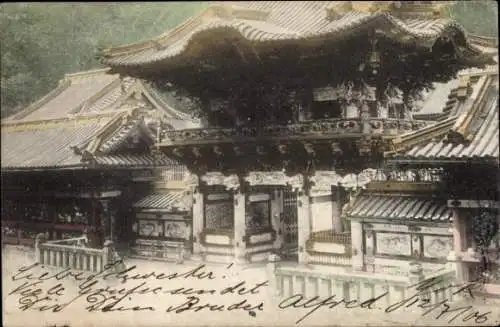 Liebe Schwester!
Viele Grüsse sendet
Dir Dein Bruder Alfred
12/7/06